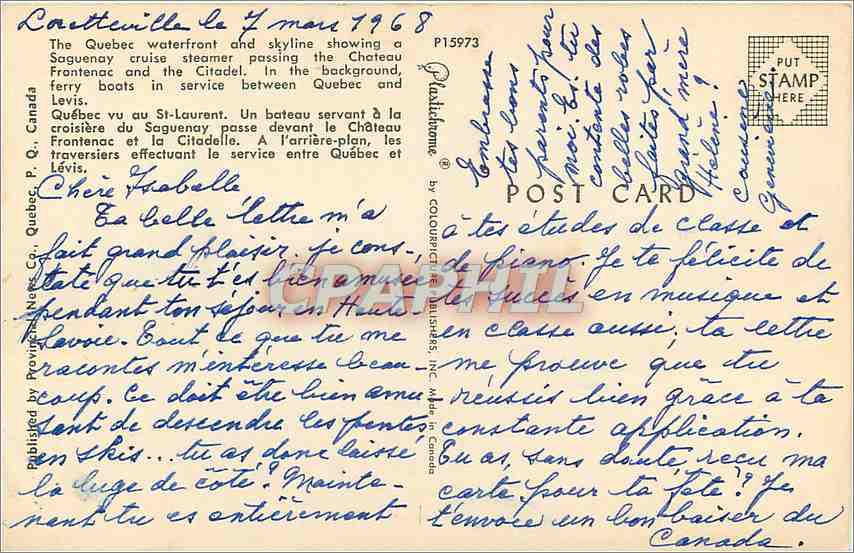 Loretteville le 7 mars 1968
The Quebec waterfront and skyline showing a
Saguenay cruise steamer passing the Chateau
Frontenac and the Citadel. In the background,
ferry boats in service between Quebec and
Levis.
Québec vu au St-Laurent. Un bateau servant à la
croisière du Saguenay passe devant le Château
Frontenac et la Citadelle. A l'arrière-plan, les
traversiers effectuant le service entre Québec et
Lévis.
Chère Isabelle
Ta belle lettre m'a
fait grand plaisir. je cons-
tate que tu t'es bien amusée
pendant ton séjour en Haute-
Savoie. Tout ce que tu me
racontes m'intéresse beau-
coup. Ce doit être bien amu
sant de descendre les pentes
en skis... tu as donc laissé
la luge de côté? Mainte-
nant tu es entièrement
à tes études de classe et
de piano. Je te félicite de
tes succès en musique et
en classe aussi; ta lettre
me prouve que tu
réussis bien grâce à ta
constante application.
Tu as, sans doute, reçu ma
carte pour ta fête? Je
t'envoie un bon baiser du
Canada.
Embrasse
tes bons
parents pour
moi. Es. tu
contente des
belles robes
faites par
grand'mère
Hélène?
cousine
Germaine.
P15973
POST CARD
PUT
STAMP
HERE
Plastichrome ®
by COLOURPICTURE PUBLISHERS, INC. Made in Canada
Published by Provincial News Co., Quebec, P. Q., Canada
CPAPHIL